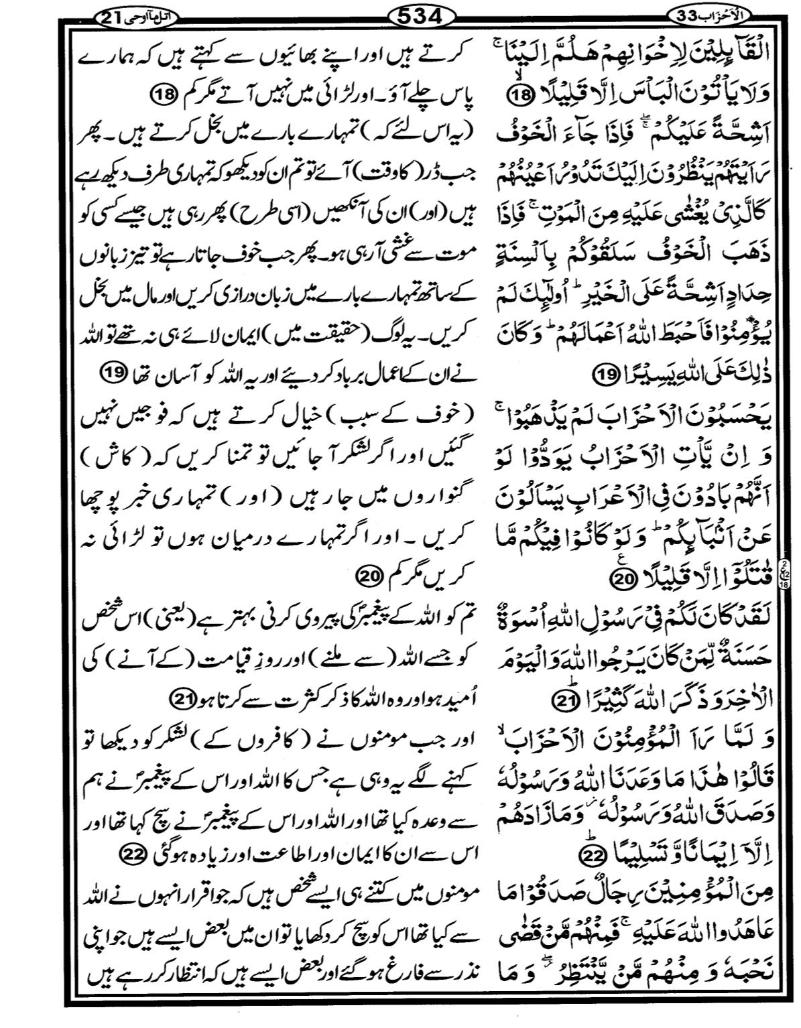 الاحزاب 33
534
اتل ما اوحی 21
الْقَآئِلِيْنَ لِاِخْوَانِهِمْ هَلُمَّ اِلَيْنَا ۚ
وَلَا يَاْتُوْنَ الْبَاْسَ اِلَّا قَلِيْلًا ۙ 18
اَشِحَّةً عَلَيْكُمْ ۖۚ فَاِذَا جَآءَ الْخَوْفُ
رَاَيْتَهُمْ يَنْظُرُوْنَ اِلَيْكَ تَدُوْرُ اَعْيُنُهُمْ
كَالَّذِىْ يُغْشٰى عَلَيْهِ مِنَ الْمَوْتِ ۚ فَاِذَا
ذَهَبَ الْخَوْفُ سَلَقُوْكُمْ بِاَلْسِنَةٍ
حِدَادٍ اَشِحَّةً عَلَى الْخَيْرِ ؕ اُولٰٓئِكَ لَمْ
يُؤْمِنُوْا فَاَحْبَطَ اللّٰهُ اَعْمَالَهُمْ ؕ وَكَانَ
ذٰلِكَ عَلَى اللّٰهِ يَسِيْرًا 19
يَحْسَبُوْنَ الْاَحْزَابَ لَمْ يَذْهَبُوْا ۚ
وَ اِنْ يَّاْتِ الْاَحْزَابُ يَوَدُّوْا لَوْ
اَنَّهُمْ بَادُوْنَ فِى الْاَعْرَابِ يَسْاَلُوْنَ
عَنْ اَنْۢبَآئِكُمْ ؕ وَلَوْ كَانُوْا فِيْكُمْ مَّا
قٰتَلُوْۤا اِلَّا قَلِيْلًا 20 ع
لَقَدْ كَانَ لَكُمْ فِىْ رَسُوْلِ اللّٰهِ اُسْوَةٌ
حَسَنَةٌ لِّمَنْ كَانَ يَرْجُوا اللّٰهَ وَالْيَوْمَ
الْاٰخِرَ وَذَكَرَ اللّٰهَ كَثِيْرًا ؕ 21
وَ لَمَّا رَاَ الْمُؤْمِنُوْنَ الْاَحْزَابَ ۙ
قَالُوْا هٰذَا مَا وَعَدَنَا اللّٰهُ وَرَسُوْلُهٗ
وَصَدَقَ اللّٰهُ وَرَسُوْلُهٗ ۖ وَمَا زَادَهُمْ
اِلَّاۤ اِيْمَانًا وَّ تَسْلِيْمًا ؕ 22
مِنَ الْمُؤْمِنِيْنَ رِجَالٌ صَدَقُوْا مَا
عَاهَدُوا اللّٰهَ عَلَيْهِ ۚ فَمِنْهُمْ مَّنْ قَضٰى
نَحْبَهٗ وَ مِنْهُمْ مَّنْ يَّنْتَظِرُ ۖ وَ مَا
کرتے ہیں اور اپنے بھائیوں سے کہتے ہیں کہ ہمارے
پاس چلے آؤ۔ اور لڑائی میں نہیں آتے مگر کم 18
(یہ اس لئے کہ) تمہارے بارے میں بخل کرتے ہیں۔ پھر
جب ڈر (کا وقت) آئے تو تم ان کو دیکھو کہ تمہاری طرف دیکھ رہے
ہیں (اور) ان کی آنکھیں (اسی طرح) پھر رہی ہیں جیسے کسی کو
موت سے غشی آ رہی ہو۔ پھر جب خوف جاتا رہے تو تیز زبانوں
کے ساتھ تمہارے بارے میں زبان درازی کریں اور مال میں بخل
کریں۔ یہ لوگ (حقیقت میں) ایمان لائے ہی نہ تھے تو اللہ
نے ان کے اعمال برباد کر دیئے اور یہ اللہ کو آسان تھا 19
(خوف کے سبب) خیال کرتے ہیں کہ فوجیں نہیں
گئیں اور اگر لشکر آ جائیں تو تمنا کریں کہ (کاش)
گنواروں میں جا رہیں (اور) تمہاری خبر پوچھا
کریں۔ اور اگر تمہارے درمیان ہوں تو لڑائی نہ
کریں مگر کم 20
تم کو اللہ کے پیغمبرؐ کی پیروی کرنی بہتر ہے (یعنی) اس شخص
کو جسے اللہ (سے ملنے) اور روزِ قیامت (کے آنے) کی
اُمید ہو اور وہ اللہ کا ذکر کثرت سے کرتا ہو 21
اور جب مومنوں نے (کافروں کے) لشکر کو دیکھا تو
کہنے لگے یہ وہی ہے جس کا اللہ اور اس کے پیغمبرؐ نے ہم
سے وعدہ کیا تھا اور اللہ اور اس کے پیغمبرؐ نے سچ کہا تھا اور
اس سے ان کا ایمان اور اطاعت اور زیادہ ہو گئی 22
مومنوں میں کتنے ہی ایسے شخص ہیں کہ جو اقرار انہوں نے اللہ
سے کیا تھا اس کو سچ کر دکھایا تو ان میں بعض ایسے ہیں جو اپنی
نذر سے فارغ ہو گئے اور بعض ایسے ہیں کہ انتظار کر رہے ہیں